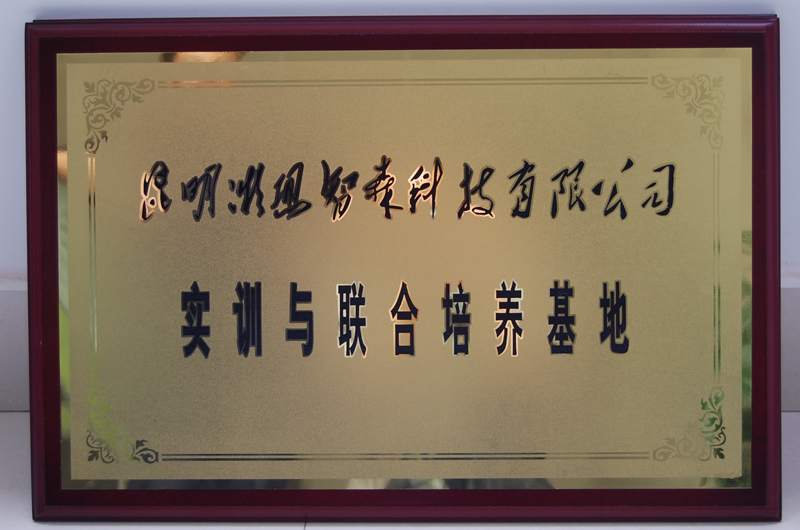 昆明漸恩智森科技有限公司
实训与联合培养基地